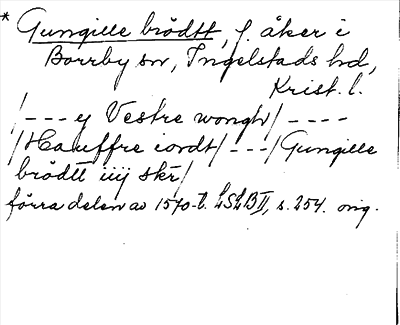 * Gungille brödtt, f. åker i
Borrby sn, Ingelstads hd,
Krist. l.
/ - - - ej Vestre wongh / - - - -
/ Hauffre iordt / - - - / Gungille
brödtt iiij skr /
förra delen av 1570-t. LSLB II, s. 254. orig.